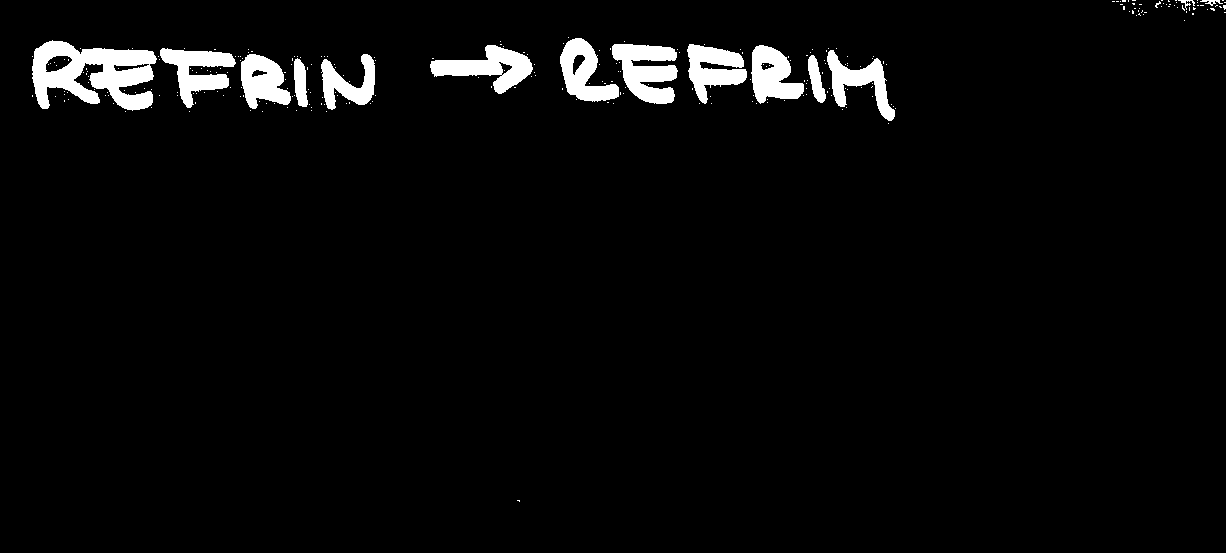 REFRIN → REFRIM